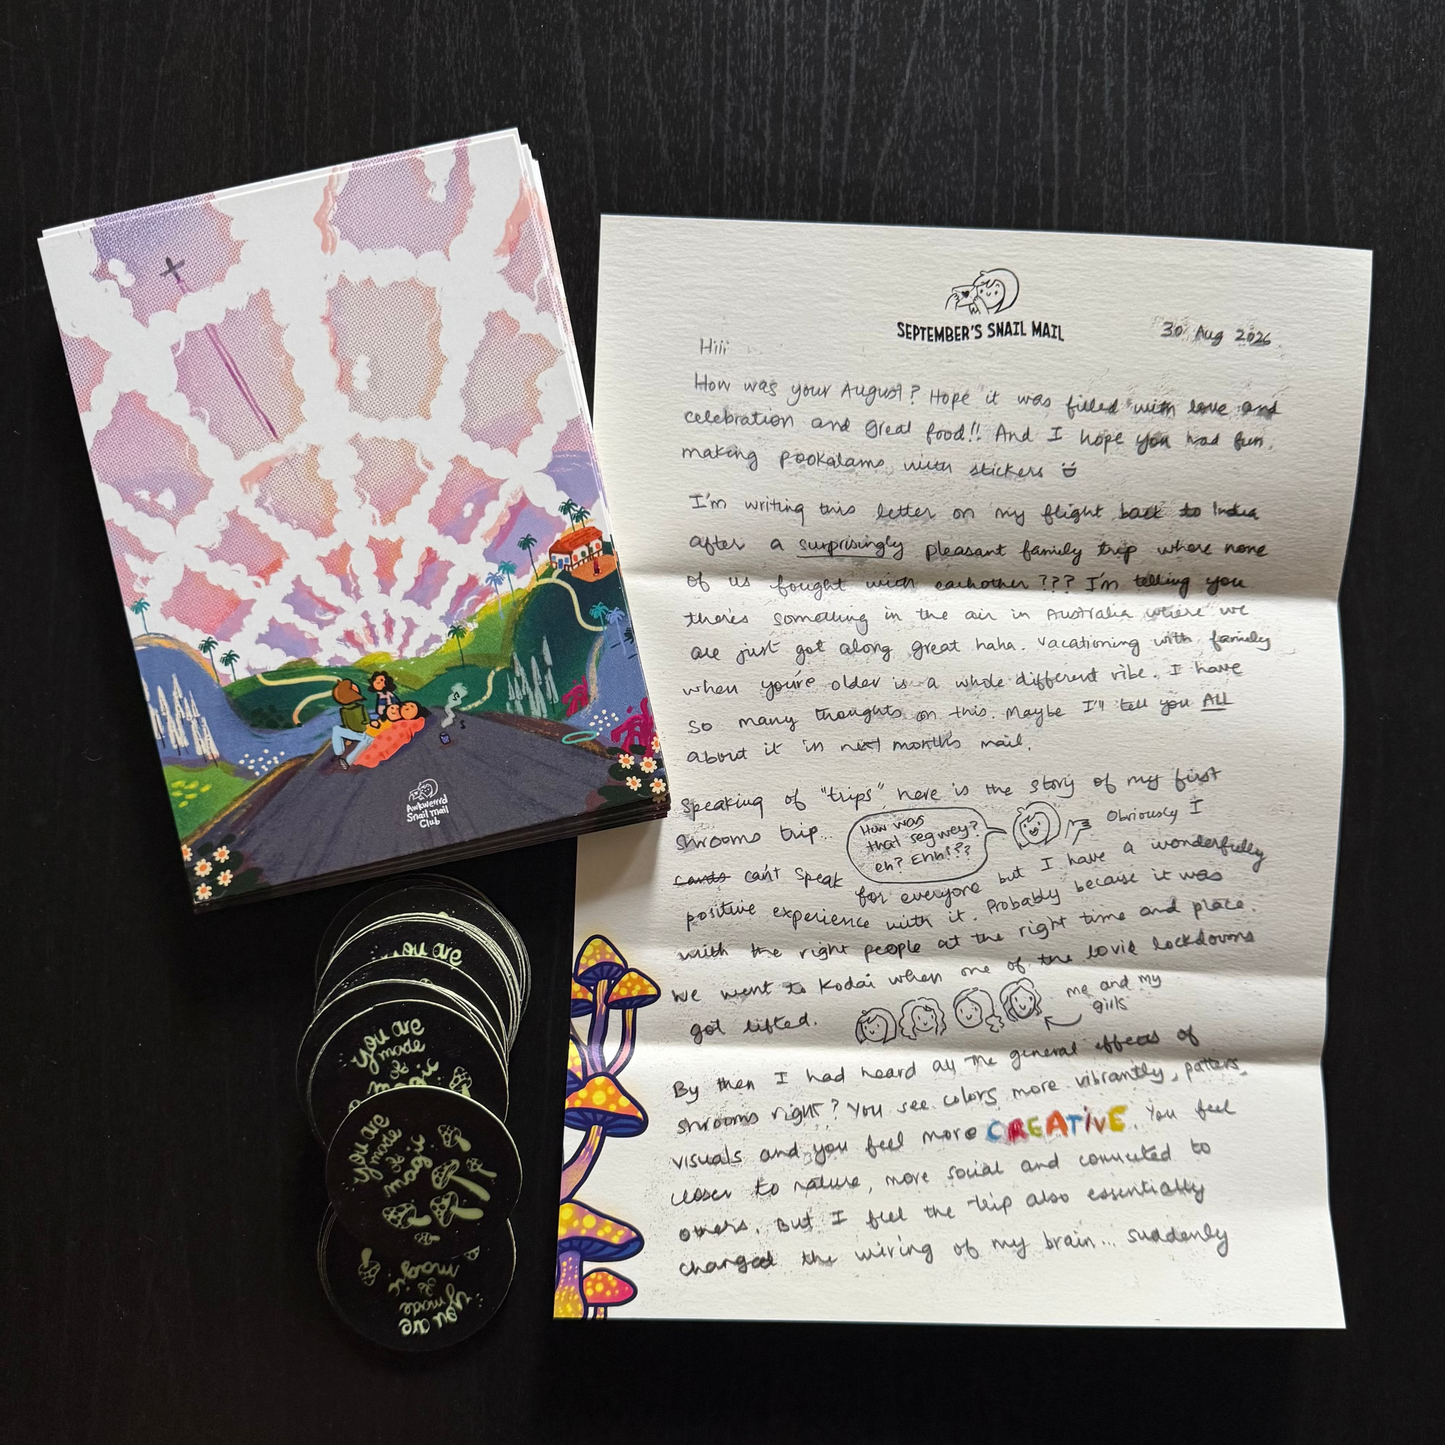 Awkweerrd
Snail Mail
Club
you are
you are
made
of
magic
you are
made
of
magic
you are
made
of
magic
SEPTEMBER'S SNAIL MAIL
30 Aug 2026
Hiii
How was your August? Hope it was filled with love and
celebration and great food!! And I hope you had fun
making pookalams with stickers
I'm writing this letter on my flight back to India
after a surprisingly pleasant family trip where none
of us fought with eachother??? I'm telling you
there's something in the air in Australia where we
are just got along great haha. Vacationing with family
when you're older is a whole different vibe. I have
so many thoughts on this. Maybe I'll tell you ALL
about it in next month's mail.
Speaking of "trips", here is the story of my first
shrooms trip...
How was
that segway?
eh? Ehh!??
Obviously I
can't speak for everyone but I have a wonderfully
positive experience with it. Probably because it was
with the right people at the right time and place.
We went to Kodai when one of the covid lockdowns
got lifted.
me and my
girls
By then I had heard all the general effects of
shrooms right? You see colors more vibrantly, patters,
visuals and you feel more CREATIVE. You feel
closer to nature, more social and connected to
others. But I feel the trip also essentially
changed the wiring of my brain... suddenly